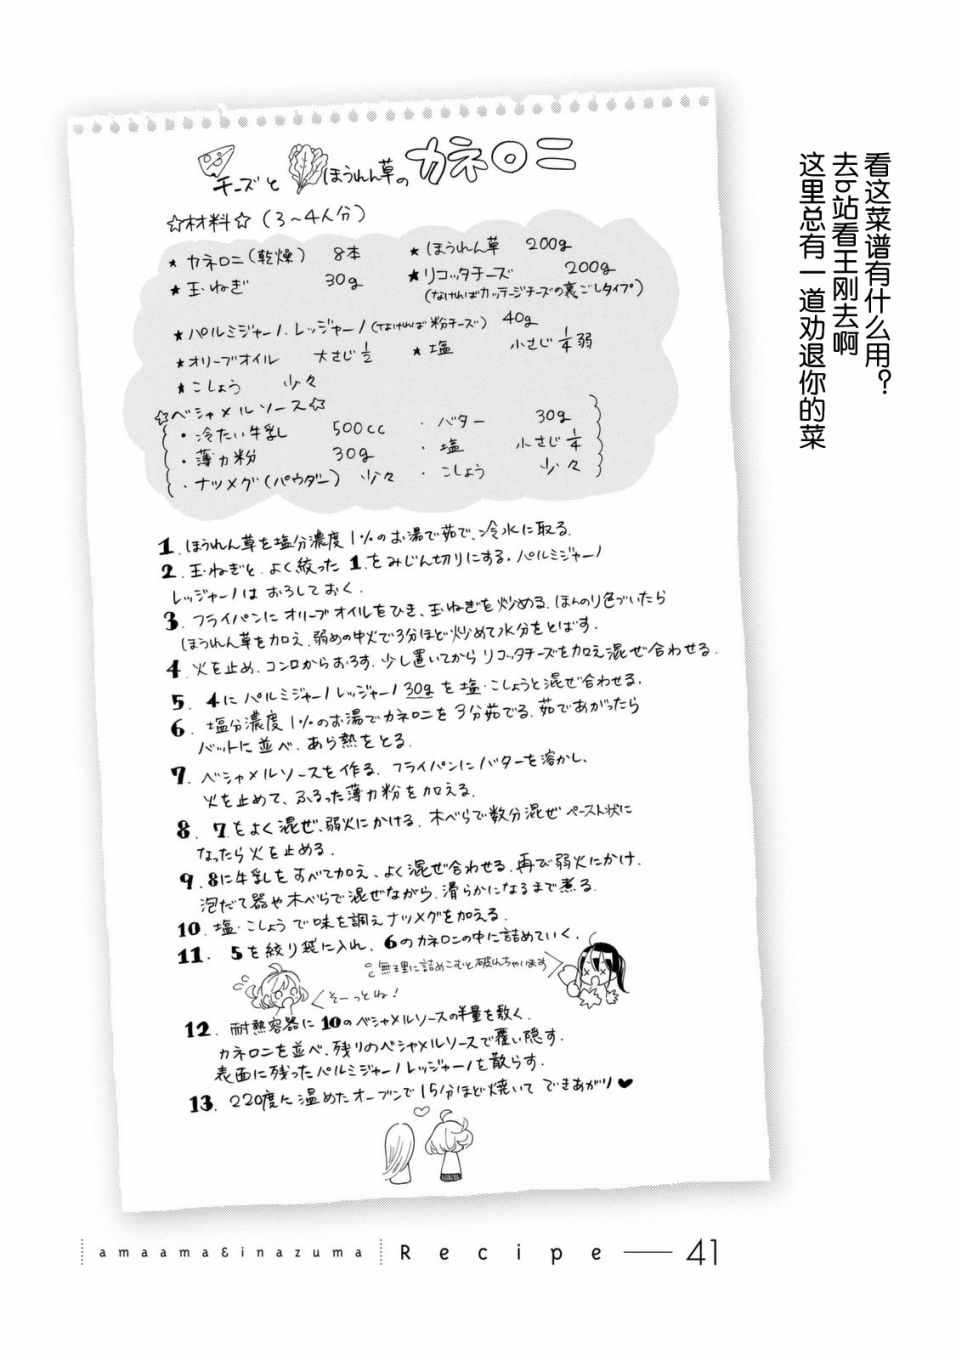 看这菜谱有什么用？
去b站看王刚去啊
这里总有一道劝退你的菜
チーズとほうれん草のカネロニ
☆材料☆（3～4人分）
★カネロニ（乾燥） 8本
★ほうれん草 200g
★玉ねぎ 30g
★リコッタチーズ 200g
（なければカッテージチーズの裏ごしタイプ）
★パルミジャーノ・レッジャーノ（なければ粉チーズ） 40g
★オリーブオイル 大さじ1/2
★塩 小さじ1/4弱
★こしょう 少々
☆ベシャメルソース☆
・冷たい牛乳 500cc
・バター 30g
・薄力粉 30g
・塩 小さじ1/4
・ナツメグ（パウダー） 少々
・こしょう 少々
1. ほうれん草を塩分濃度1%のお湯で茹で、冷水に取る。
2. 玉ねぎと、よく絞った1.をみじん切りにする。パルミジャーノ
レッジャーノはおろしておく。
3. フライパンにオリーブオイルをひき、玉ねぎを炒める。ほんのり色づいたら
ほうれん草を加え、弱めの中火で3分ほど炒めて水分をとばす。
4. 火を止め、コンロからおろす。少し置いてからリコッタチーズを加え混ぜ合わせる。
5. 4にパルミジャーノレッジャーノ30gを塩・こしょうと混ぜ合わせる。
6. 塩分濃度1%のお湯でカネロニを3分茹でる。茹であがったら
バットに並べ、あら熱をとる。
7. ベシャメルソースを作る。フライパンにバターを溶かし、
火を止めて、ふるった薄力粉を加える。
8. 7.をよく混ぜ、弱火にかける。木べらで数分混ぜペースト状に
なったら火を止める。
9. 8に牛乳をすべて加え、よく混ぜ合わせる。再び弱火にかけ、
泡だて器や木べらで混ぜながら、滑らかになるまで煮る。
10. 塩・こしょうで味を調えナツメグを加える。
11. 5を絞り袋に入れ、6のカネロニの中に詰めていく。
無理に詰めこむと破れちゃいます
そーっとね！
12. 耐熱容器に10のベシャメルソースの半量を敷く。
カネロニを並べ、残りのベシャメルソースで覆い隠す。
表面に残ったパルミジャーノレッジャーノを散らす。
13. 220度に温めたオーブンで15分ほど焼いてできあがり♥
amaama&inazuma Recipe 41